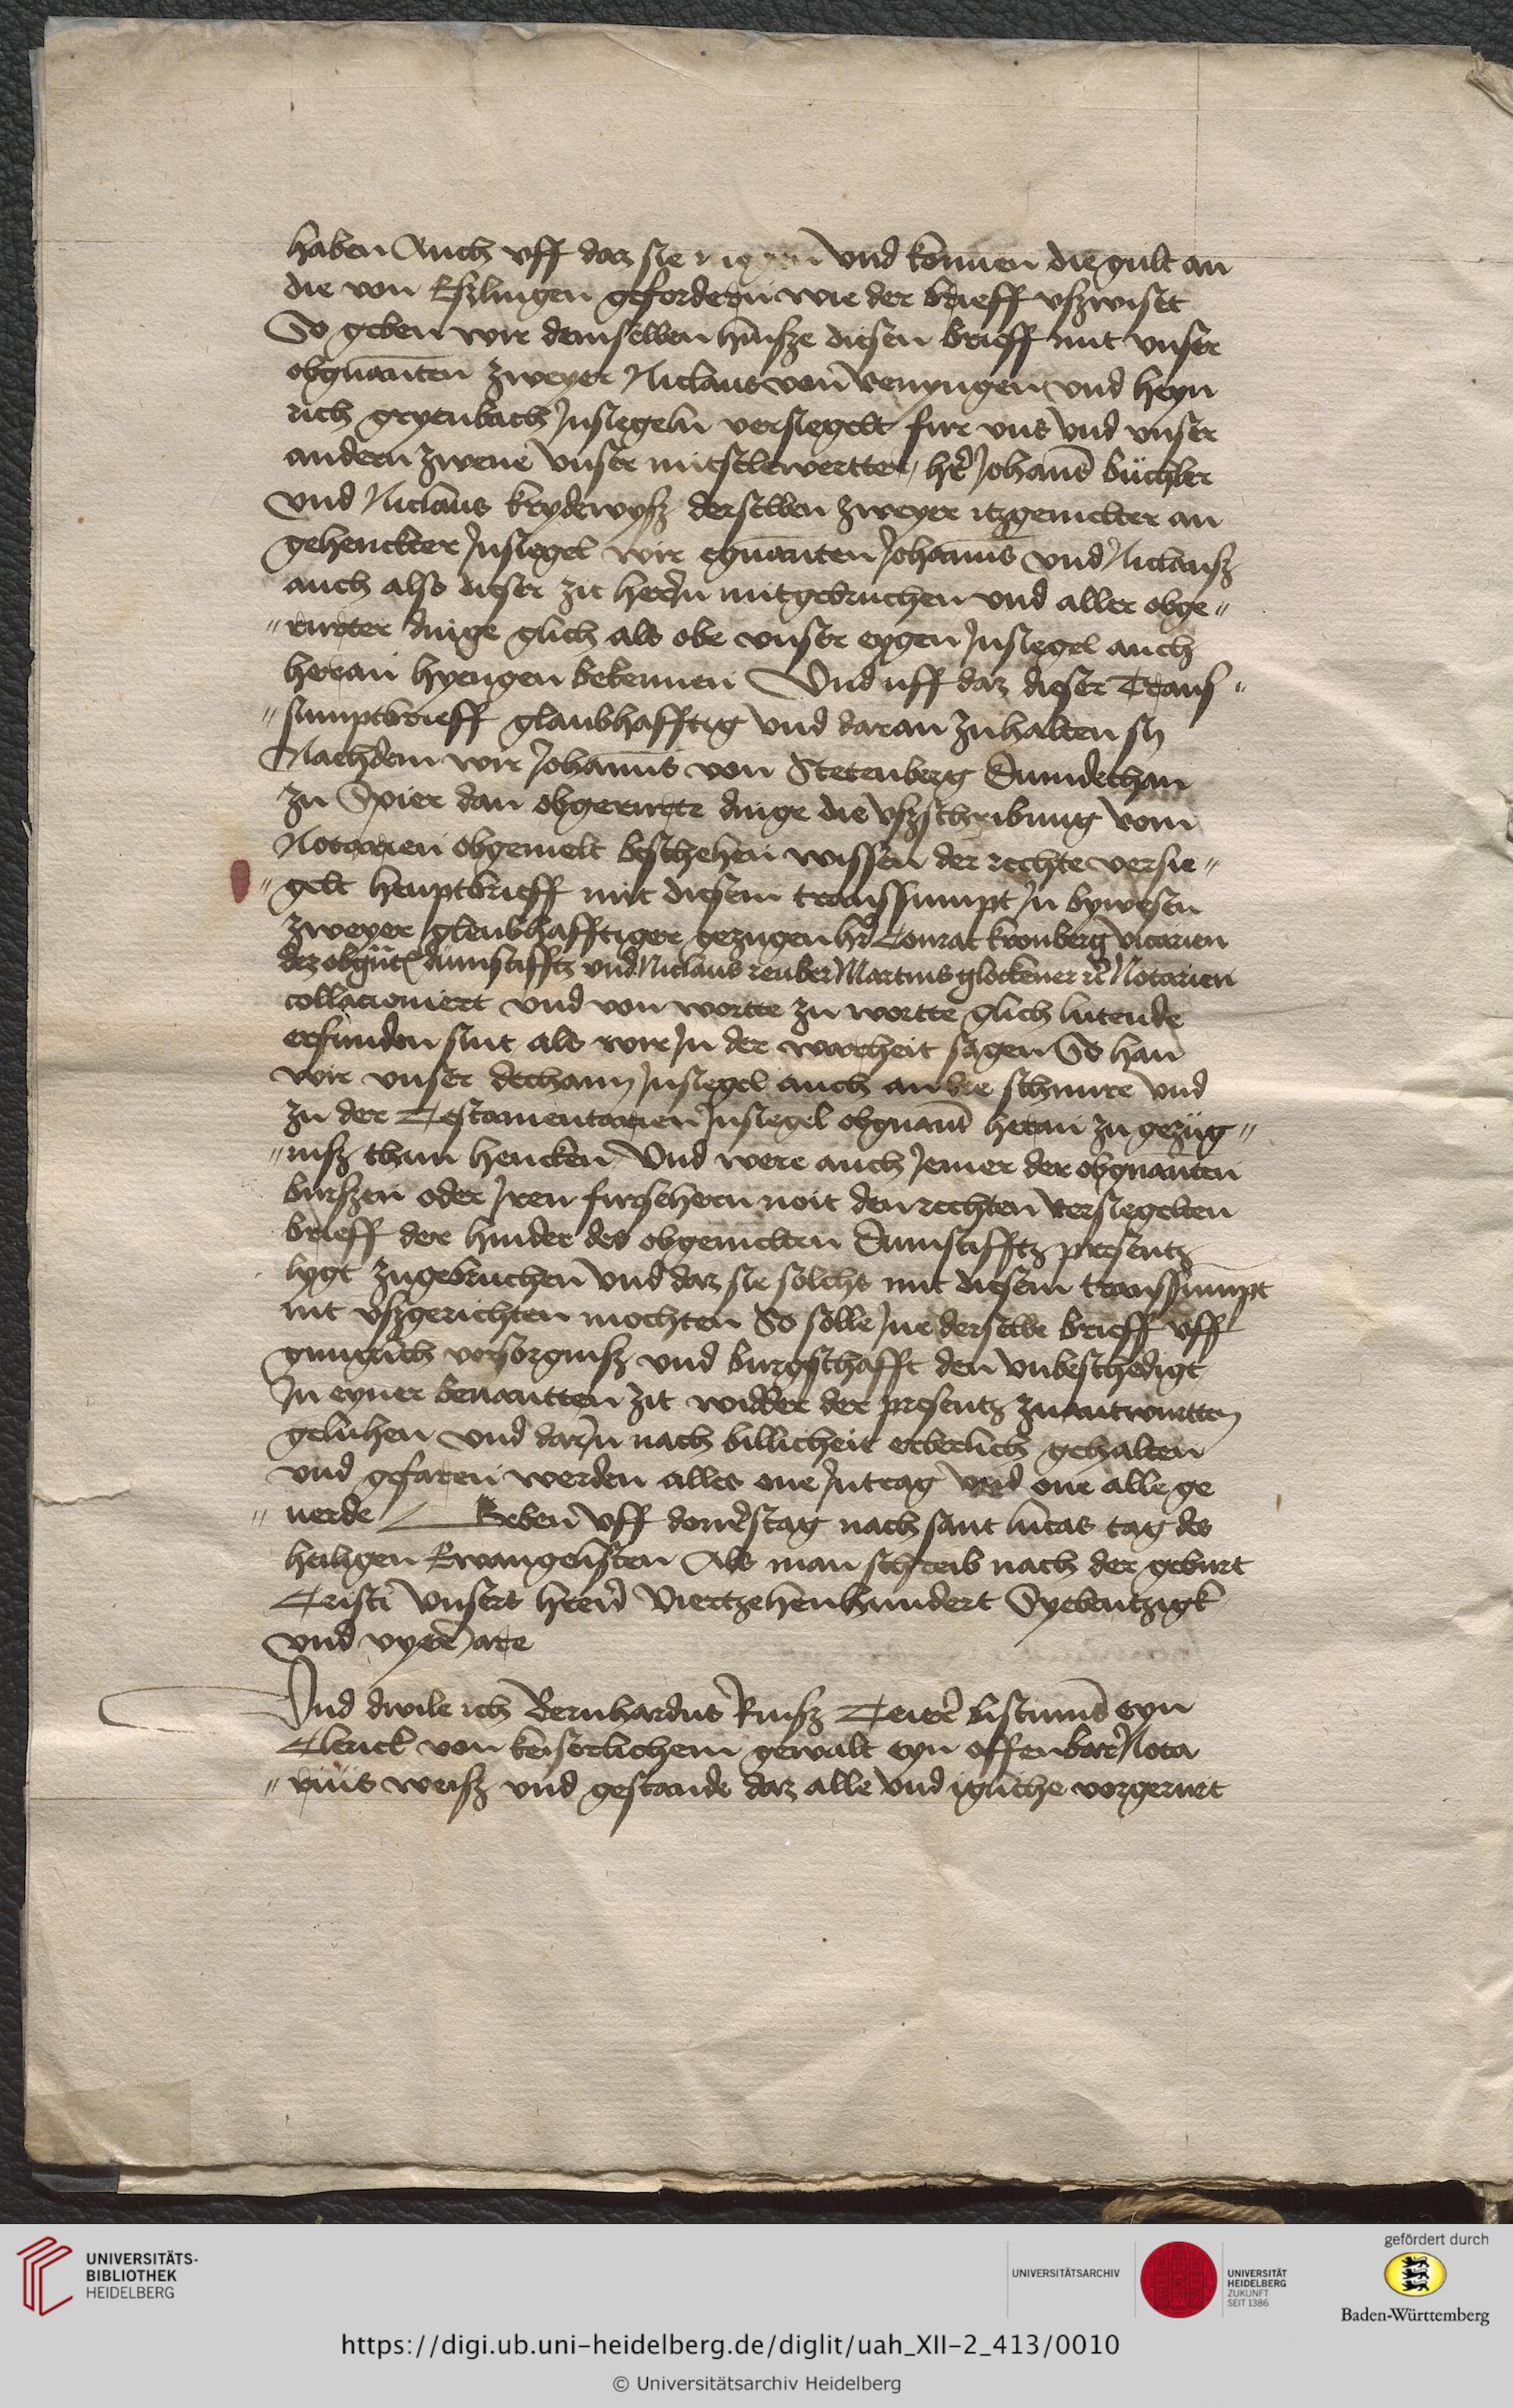 haben Auch uff daz sie mogen und konnen die gult an
die von Eszlingen gefordern wie der brieff uszwiset
So geben wir demselben husze diesen brieff mit unser
obgnanten zweyer Niclaus von Venyngen und Heyn
rich geyenbach Insiegeln versiegelt fur uns und unser
andern zwene unser mitselewertter, hr Johans büchler
und Niclaus krydewysz derselben zweyer itzgemelter an
gehenckter Insiegel wir egnanten Johannes und Niclausz
auch also dieser zit herin mitgebruchen und aller obge"
"rurter dinge glich als obe unser eygen Insiegel auch
heran hyengen bekennen Und uff daz dieser Trans"
"sumptbrieff glaubhafftig und daran zuhalten sy
Nachdem wir Johannes von Stetenberg Dumdechan
zu Spier dan obgerurte dinge die uszschribung vom
Notarien obgemelt beschehen wissen der rechte versie"
"gelt heuptbrieff mit diesem transsumpt In bywesen
zweyer gleubhafftiger gezugen hr Conrat kronberg vicarien
dez obgnt dumstiffts und Niclaus reuber Martins glockener rc Notarien
collacioniert und von wortte zu wortte glich lutende
erfunden sint als wir In der warheit sagen So han
wir unser dechanny Insiegel auch an die schnure und
zu der Testamentarien Insiegel obgnant heran zu gezüg"
"nisz thun hencken Und were auch Jemer der obgnanten
burszen oder Iren fursehern noit den rechten versiegelten
brieff der hinder des obgemelten Dumstiffts presentz
lygt zugebruchen und daz sie solchs mit diesem transsumpt
nit uszgerichten mochten So solle Ine derselbe brieff uff
gnuglich vorsorgnisz und burgschafft den unbeschedigt
In eyner benantten zit widder der presentz zuantwurtten
geluhen und darin nach billicheit erberlich gehalten
und gefaren werden alles one Intrag und one alle ge
"uerde Geben uff dornstag nach sant lucas tag des
heiligen Ewangelisten Als man schreib nach der geburt
Cristi unsers hern Viertzehenhundert Syebentzigk
und vyere Jare
Und dwile ich Bernhardus Rusz Trierer bistums eyn
Clerick von keiserlichem gewalt eyn offenbar Nota
"rius weisz und gestande daz alle und igliche vorgerurt
UNIVERSITÄTS-
BIBLIOTHEK
HEIDELBERG
UNIVERSITÄTSARCHIV
UNIVERSITÄT
HEIDELBERG
ZUKUNFT
SEIT 1386
gefördert durch
Baden-Württemberg
https://digi.ub.uni-heidelberg.de/diglit/uah_XII-2_413/0010
© Universitätsarchiv Heidelberg